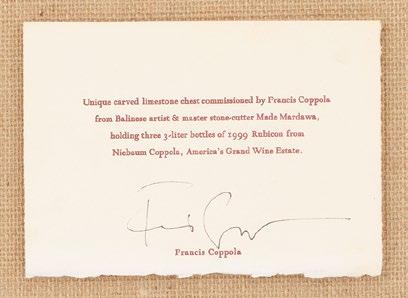 Unique carved limestone chest commissioned by Francis Coppola
from Balinese artist & master stone-cutter Made Mardawa,
holding three 3-liter bottles of 1999 Rubicon from
Niebaum Coppola, America's Grand Wine Estate.
Francis Coppola